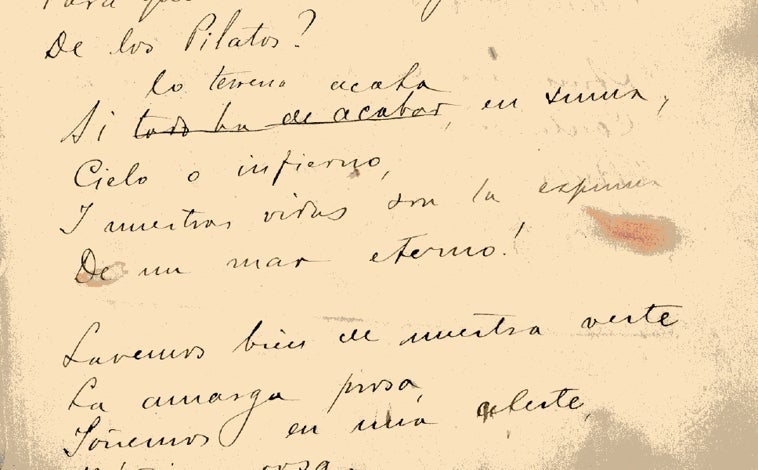 Para que
De los Pilatos?
lo terreno acaba
Si todo ha de acabar, en suma,
Cielo o infierno,
I nuestras vidas son la espuma
De un mar eterno!
Lavemos bien de nuestra veste
La amarga prosa,
Soñemos en una celeste,
rosa.